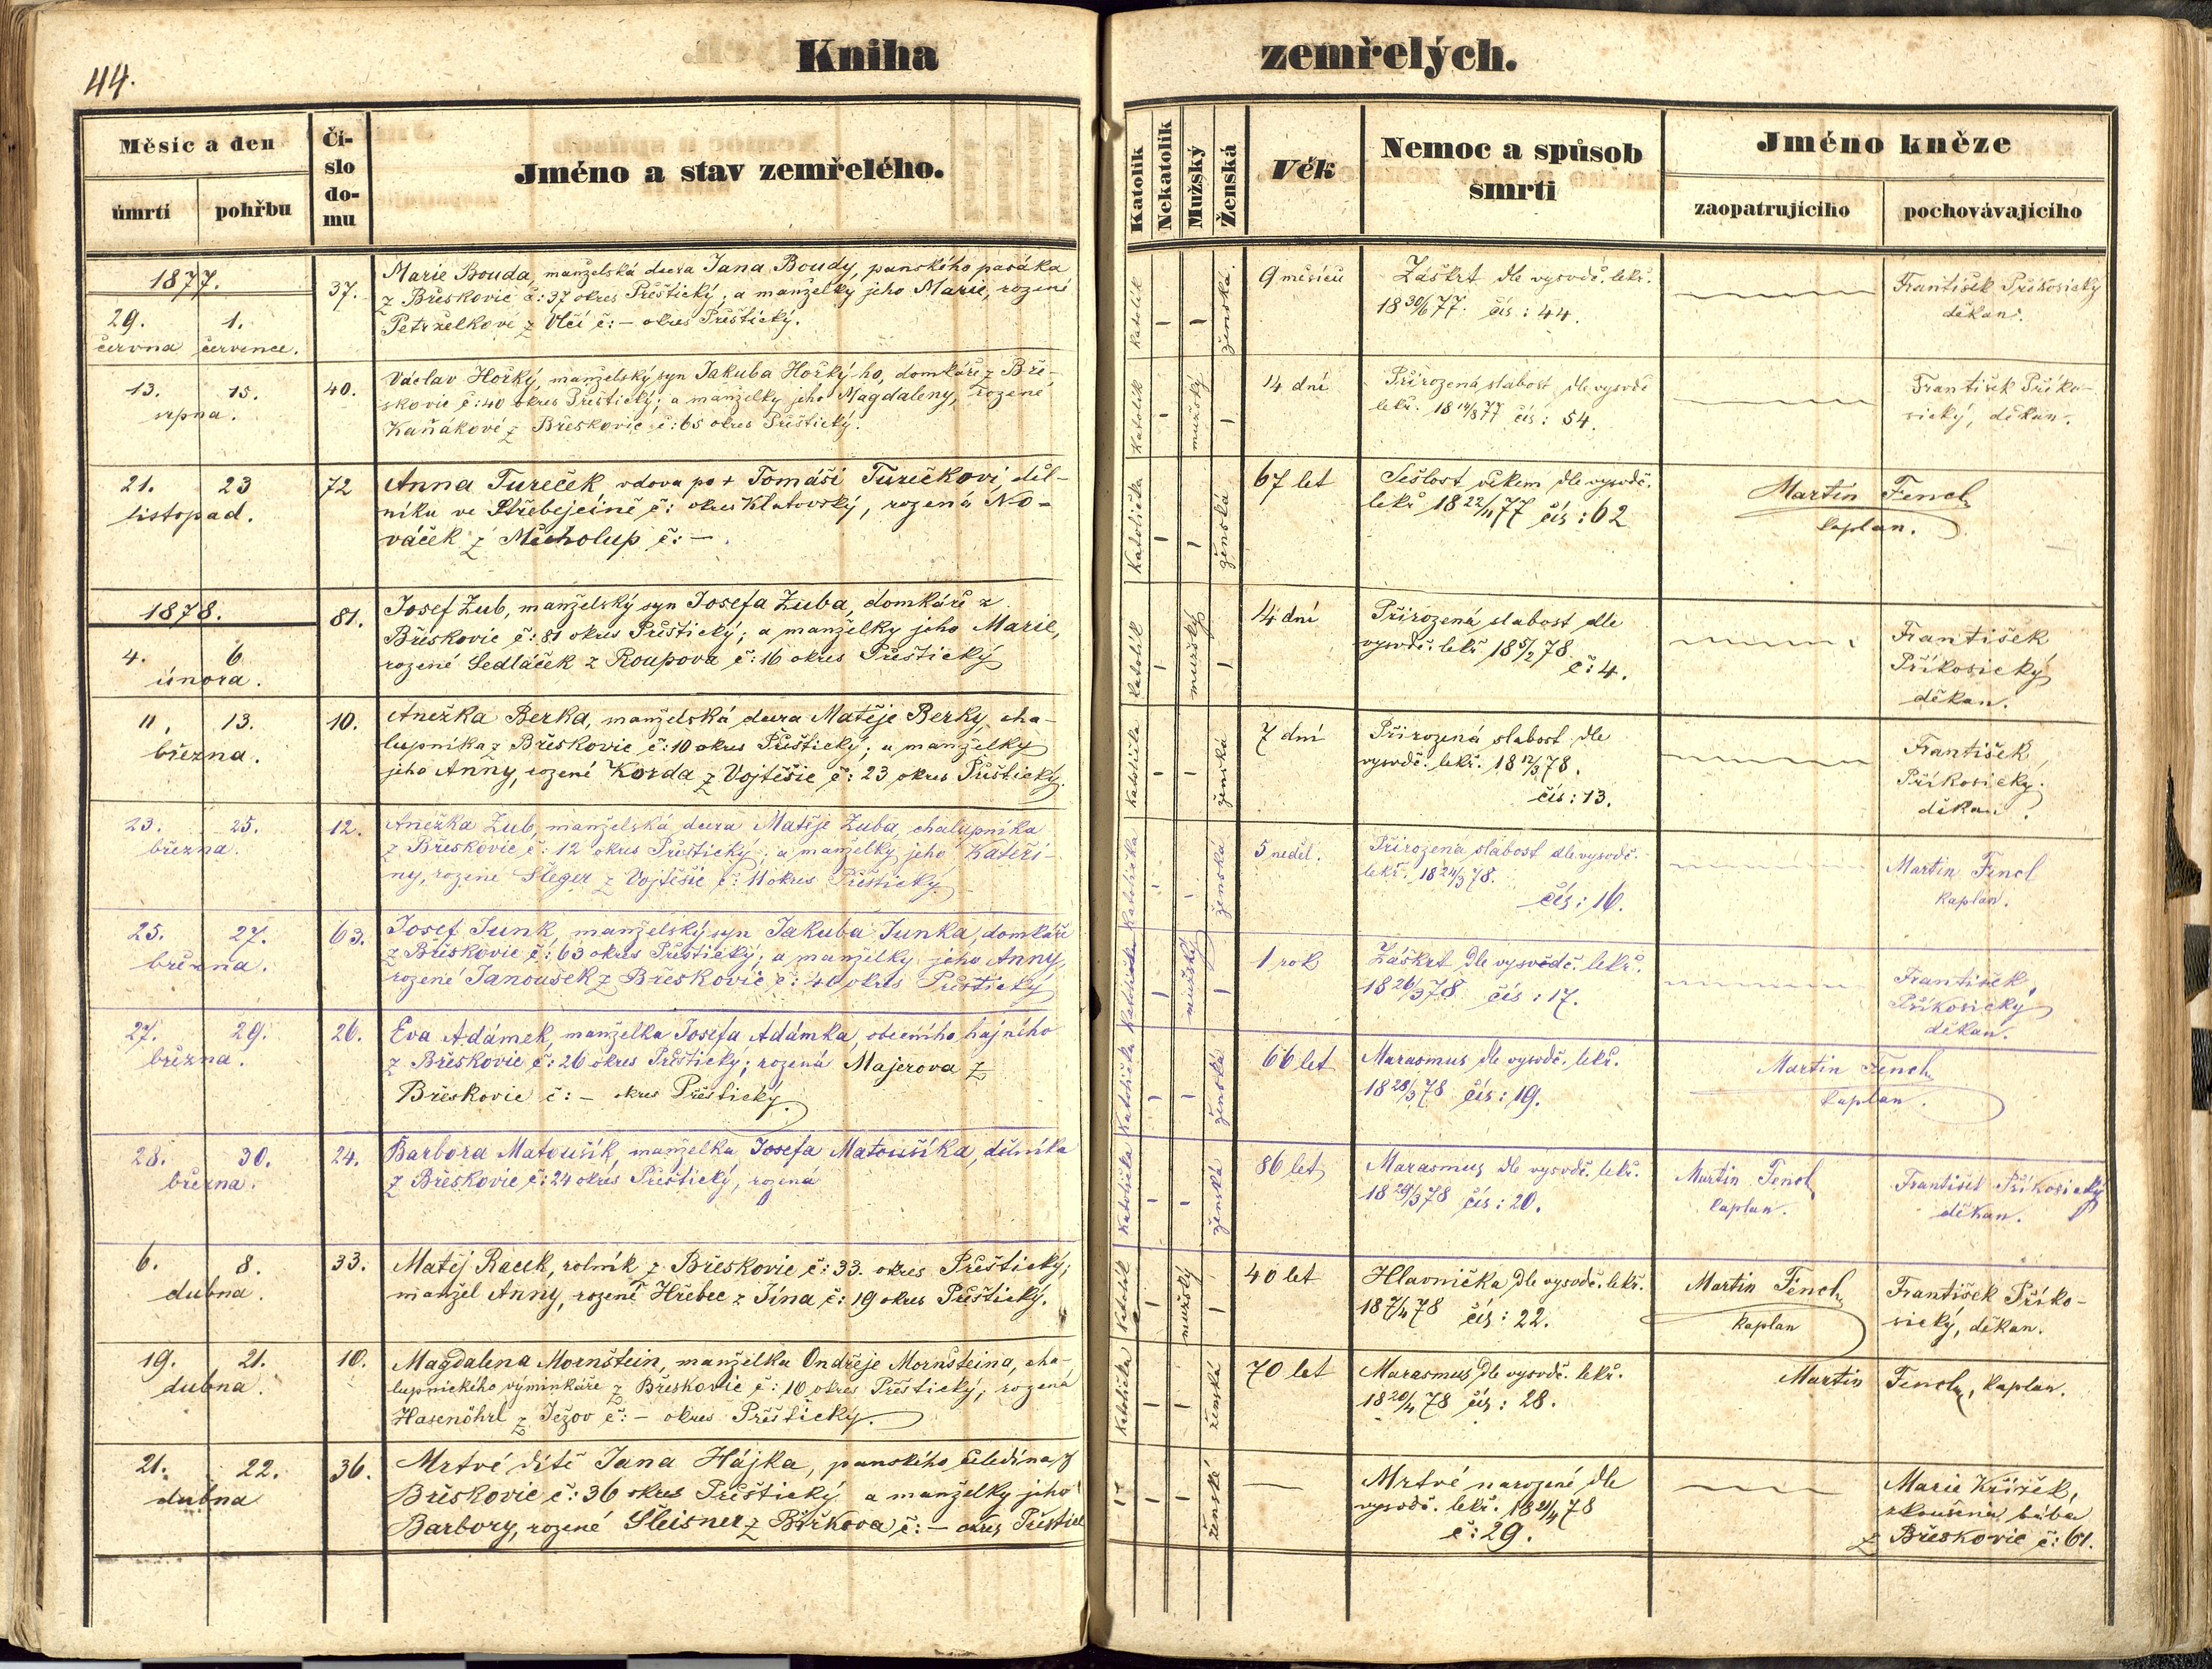 44.
Kniha zemřelých.
Měsíc a den
úmrtí pohřbu
Čí-
slo
do-
mu
Jméno a stav zemřelého.
Katolík
Nekatolík
Mužský
Ženská
Věk
Nemoc a spůsob
smrti
Jméno kněze
zaopatrujícího pochovávajícího
1877.
29. 1.
června července.
37.
Marie Bouda, manželská dcera Jana Boudy, panského pasáka
z Břeskovic č: 37 okres Přeštický; a manželky jeho Marie, rozené
Petrželkové z Vlčí č: – okres Přeštický.
katolík – – ženská.
9 měsíců
Záškrt dle vysvdč. lekř.
18 30/6 77. čís: 44.
František Příkosický
děkan.
13. 15.
srpna.
40.
Václav Horký, manželský syn Jakuba Horkýho, domkáře z Bře-
skovic č: 40 okres Přeštický; a manželky jeho Magdaleny, rozené
Kaňákové z Břeskovic č: 65 okres Přeštický.
katolík – mužský –
14 dní
Přirozená slabost dle vysvdč
lekř. 18 14/8 77 čís: 54.
František Příko-
sický, děkan.
21. 23
listopad.
72
Anna Tureček, vdova po + Tomáši Turečkovi, děl-
níku ve Střebejčině č: okres Klatovský, rozená No-
váček z Měcholup č: –
Katolička – – ženská
67 let
Sešlost věkem dle vysvdč.
lekř 18 22/11 77 čís: 62
Martin Fencl
kaplan.
1878.
4. 6
února.
81.
Josef Zub, manželský syn Josefa Zuba, domkáře z
Břeskovic č: 81 okres Přeštický; a manželky jeho Marie,
rozené Sedláček z Roupova č: 16 okres Přeštický
katolík – mužský –
14 dní
Přirozená slabost dle
vysvdč. lekř 18 5/2 78
č: 4.
František
Příkosický
děkan.
11. 13.
března.
10.
Anežka Berka, manželská dcera Matěje Berky, cha-
lupníka z Břeskovic č: 10 okres Přeštický; a manželky
jeho Anny, rozené Korda z Vojtěšic č: 23 okres Přeštický.
katolička – – ženská
7 dní
Přirozená slabost dle
vysvdč. lekř. 18 12/3 78.
čís: 13.
František
Příkosický.
děkan.
23. 25.
března.
12.
Anežka Zub, manželská dcera Matěje Zuba, chalupníka
z Břeskovic č: 12 okres Přeštický; a manželky jeho Kateři-
ny, rozené Šleger z Vojtěšic č: 11 okres Přeštický.
katolička – – ženská
5 neděl.
Přirozená slabost dle vysvdč.
lekř. 18 24/3 78.
čís: 16.
Martin Fencl
kaplan.
25. 27.
března.
63.
Josef Junk, manželský syn Jakuba Junka, domkáře
z Břeskovic č: 63 okres Přeštický; a manželky jeho Anny,
rozené Janoušek z Břeskovic č: 40 okres Přeštický
– mužský –
1 rok
Záškrt dle vysvědč. lekř.
18 26/3 78 čís: 17.
František
Příkosický
děkan.
27. 29.
března.
26.
Eva Adámek, manželka Josefa Adámka, obecního hajného
z Břeskovic č: 26 okres Přeštický; rozená Majerova z
Břeskovic č: – okres Přeštický.
Katolička – – ženská
66 let
Marasmus dle vysvdč. lekř.
18 28/3 78 čís: 19.
Martin Fencl
kaplan.
28. 30.
března.
24.
Barbora Matoušík, manželka Josefa Matoušíka, dělníka
z Břeskovic č: 24 okres Přeštický, rozená
Katolička – – ženská
86 let
Marasmus dle vysvdč. lekř.
18 29/3 78 čís: 20.
Martin Fencl
kaplan.
František Příkosický
děkan.
6. 8.
dubna.
33.
Matěj Racek, rolník z Břeskovic č: 33. okres Přeštický;
manžel Anny, rozené Hřebec z Jína č: 19 okres Přeštický.
katolík – mužský –
40 let
Hlavnička dle vysvdč. lekř.
18 7/4 78 čís: 22.
Martin Fencl
kaplan
František Příko-
sický, děkan.
19. 21.
dubna.
10.
Magdalena Mornštein, manželka Ondřeje Mornšteina, cha-
lupnického výminkáře z Břeskovic č: 10 okres Přeštický; rozená
Hasenöhrl z Ježov č: – okres Přeštický.
katolička – – ženská
70 let
Marasmus dle vysvdč. lekř.
18 20/4 78 čís: 28.
Martin Fencl, kaplan.
21. 22.
dubna
36.
Mrtvé dítě Jana Hájka, panského čeledína z
Břeskovic č: 36 okres Přeštický a manželky jeho
Barbory, rozené Šleisner z Borkova č: – okres Přeštic
– – ženské
Mrtvé narozené dle
vysvdč. lekř. 18 21/4 78
č: 29.
Marie Křížek,
zkoušená bába
z Břeskovic č: 61.